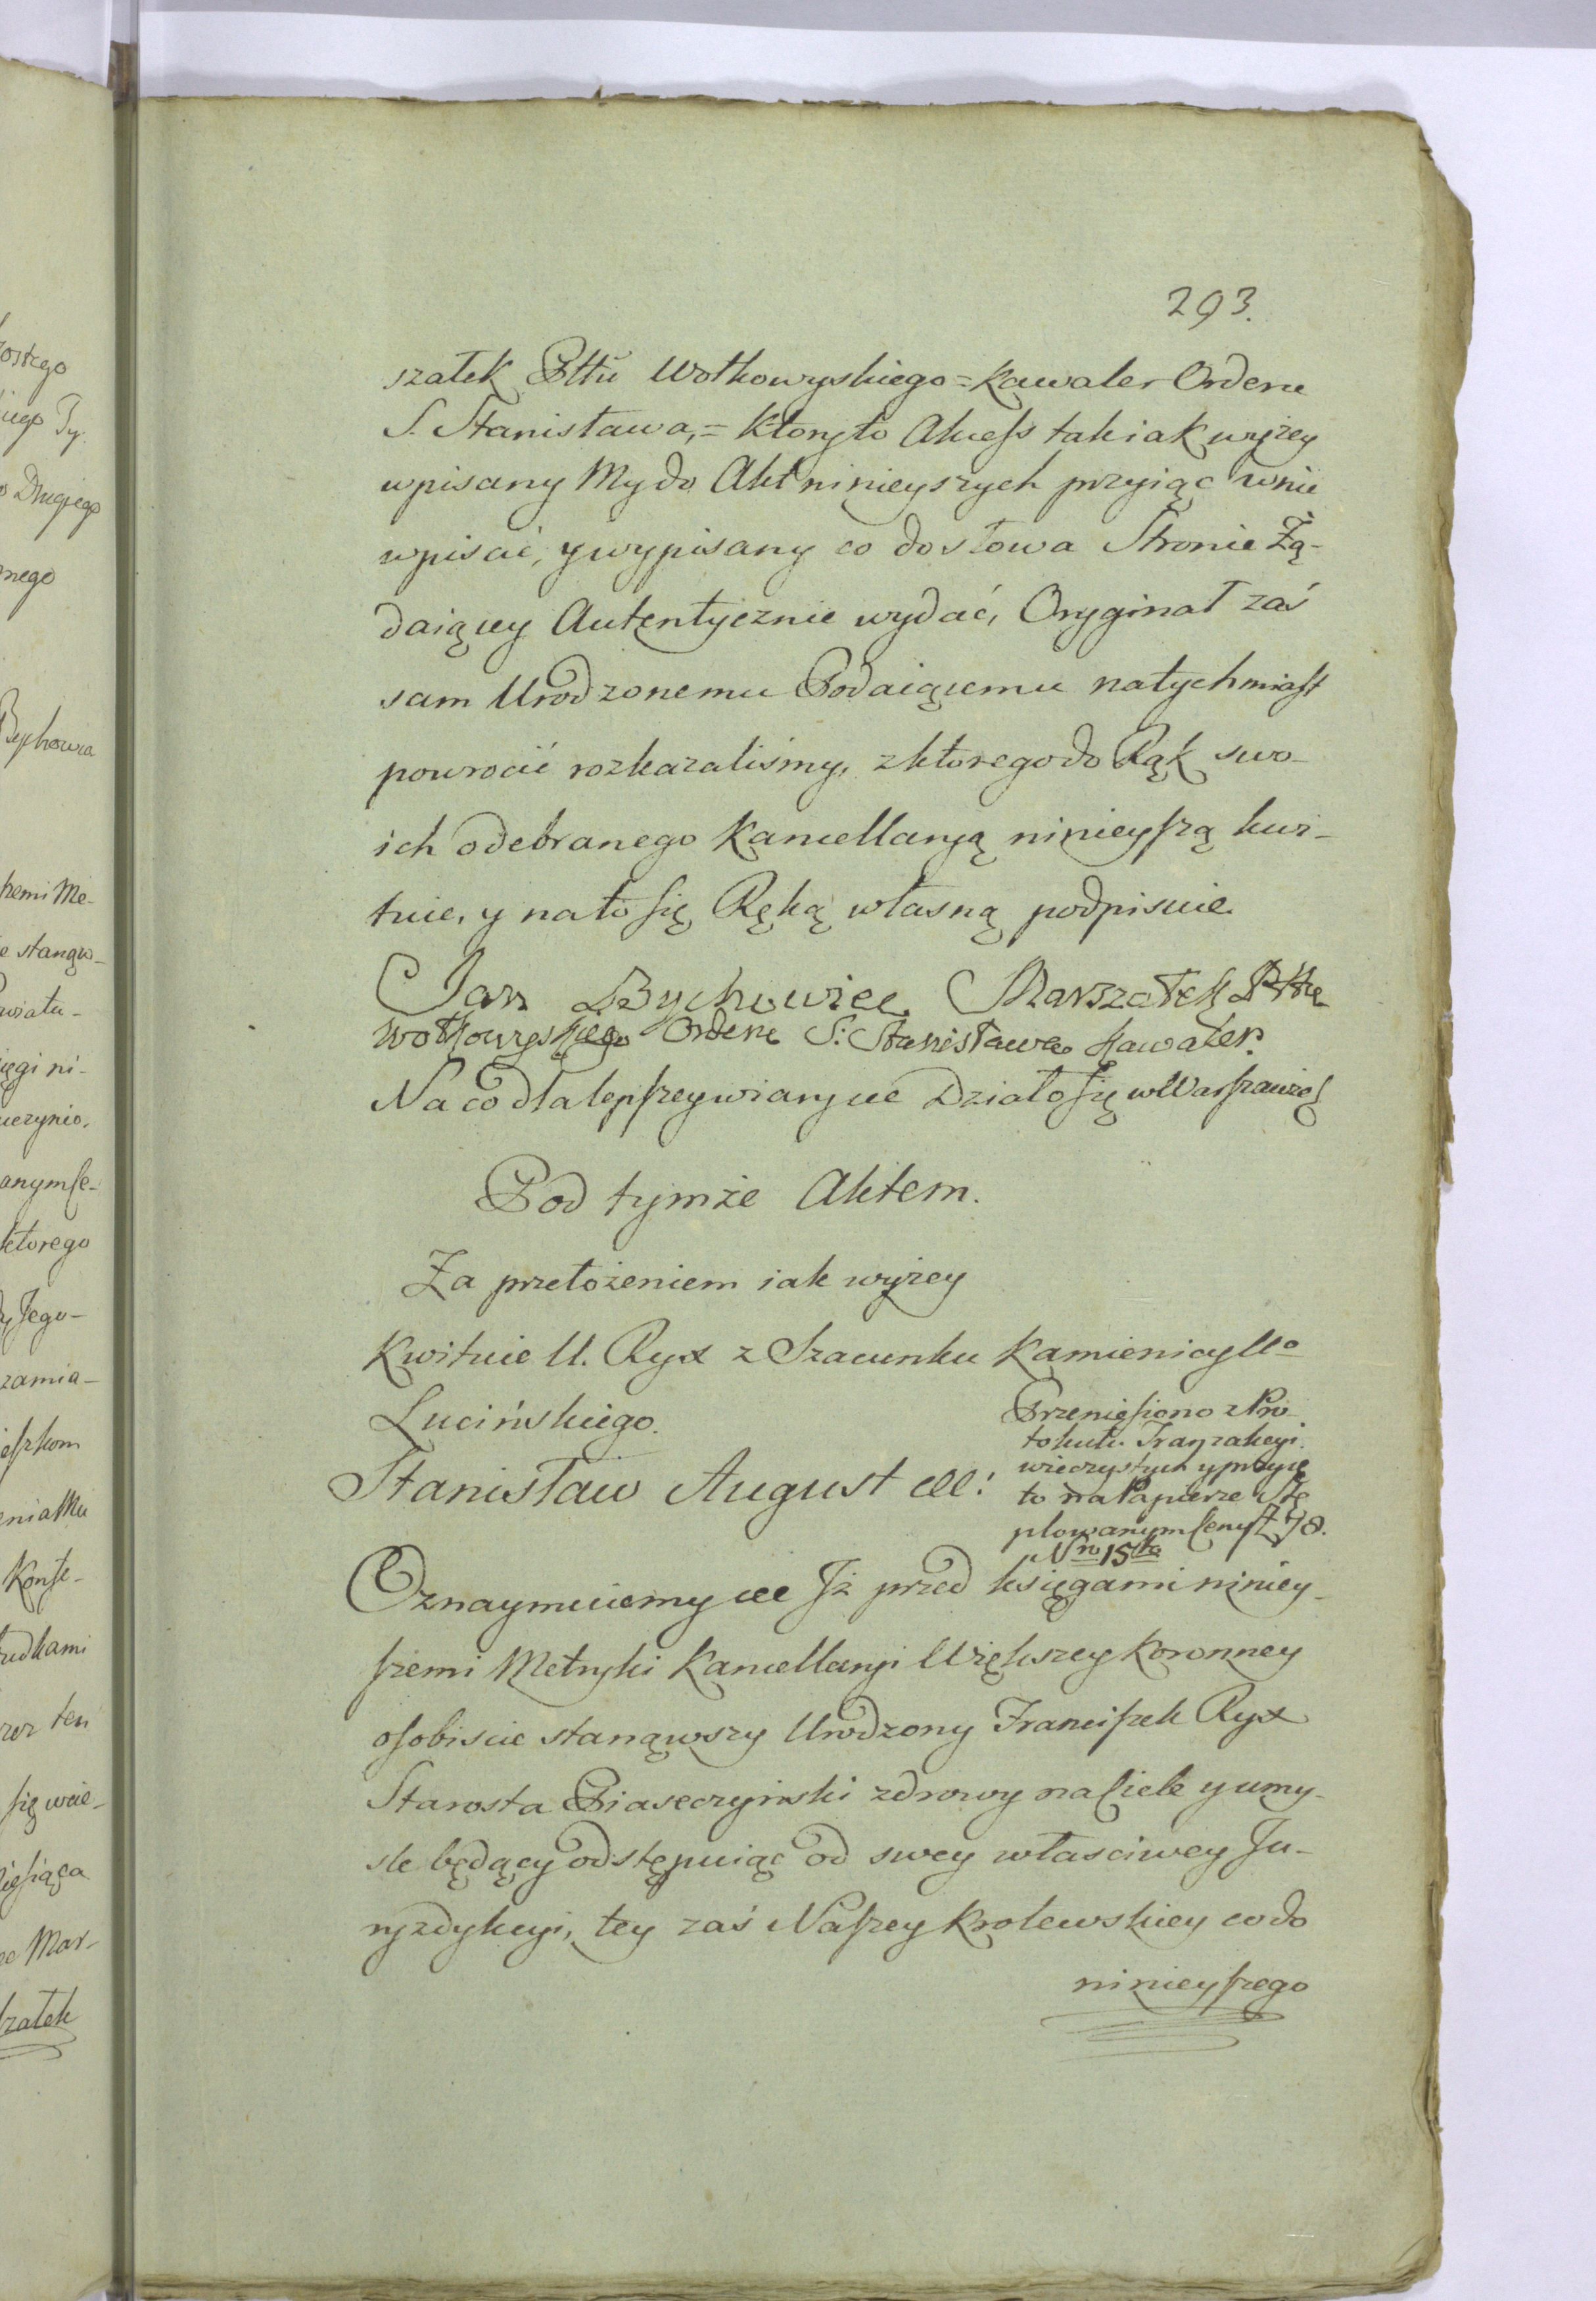 293.
szałek Pttu Wołkowyskiego = Kawaler Orderu
S. Stanisława, = ktoryto Akcess tak iak wyżey
wpisany My do Akt ninieyszych przyiąc w nie
wpisać, y wypisany co do słowa Stronie Żą-
daiącey Autentycznie wydać, Oryginał zaś
sam Urodzonemu Podaiącemu natychmiast
powrocić rozkazaliśmy, z ktorego do Rąk swo-
ich odebranego Kancellaryą ninieyszą kwi-
tuie, y na to się Ręką własną podpisuie.
Jan Bychowiec Marszałek Pttu
Wołkowyskiego Orderu S: Stanisława Kawaler.
Na co dla lepszey wiary etc Działo się w Warszawie
Pod tymże Aktem.
Za przełożeniem iak wyżey
Kwituie U. Ryx z Szacunku Kamienicy Uo
Lucińskiego.
Przeniesiono z Pro-
tokułu Tranzakcyi
wieczystych y przyię
to na Papierze Stę
plowanym Ceny Zł 78.
Nro 15to
Stanisław August etc:
Oznaymuiemy etc Iż przed księgami niniey-
szemi Metryki Kancellaryi Większey Koronney
osobiscie stanąwszy Urodzony Franciszek Ryx
Starosta Piaseczyński zdrowy na Ciele y umy-
sle będący odstępuiąc od swey własciwey Ju-
ryzdykcyi, tey zaś Naszey Krolewskiey co do
ninieyszego
ostrego
Drugiego
nego
Bychowca
kemi Me-
e stanąw-
wiatu-
ięgi ni-
uczynio.
anym Ce-
ktorego
Jego-
zamia-
Konse-
ten
się w cie-
iesiąca
ec Mar-
szałek